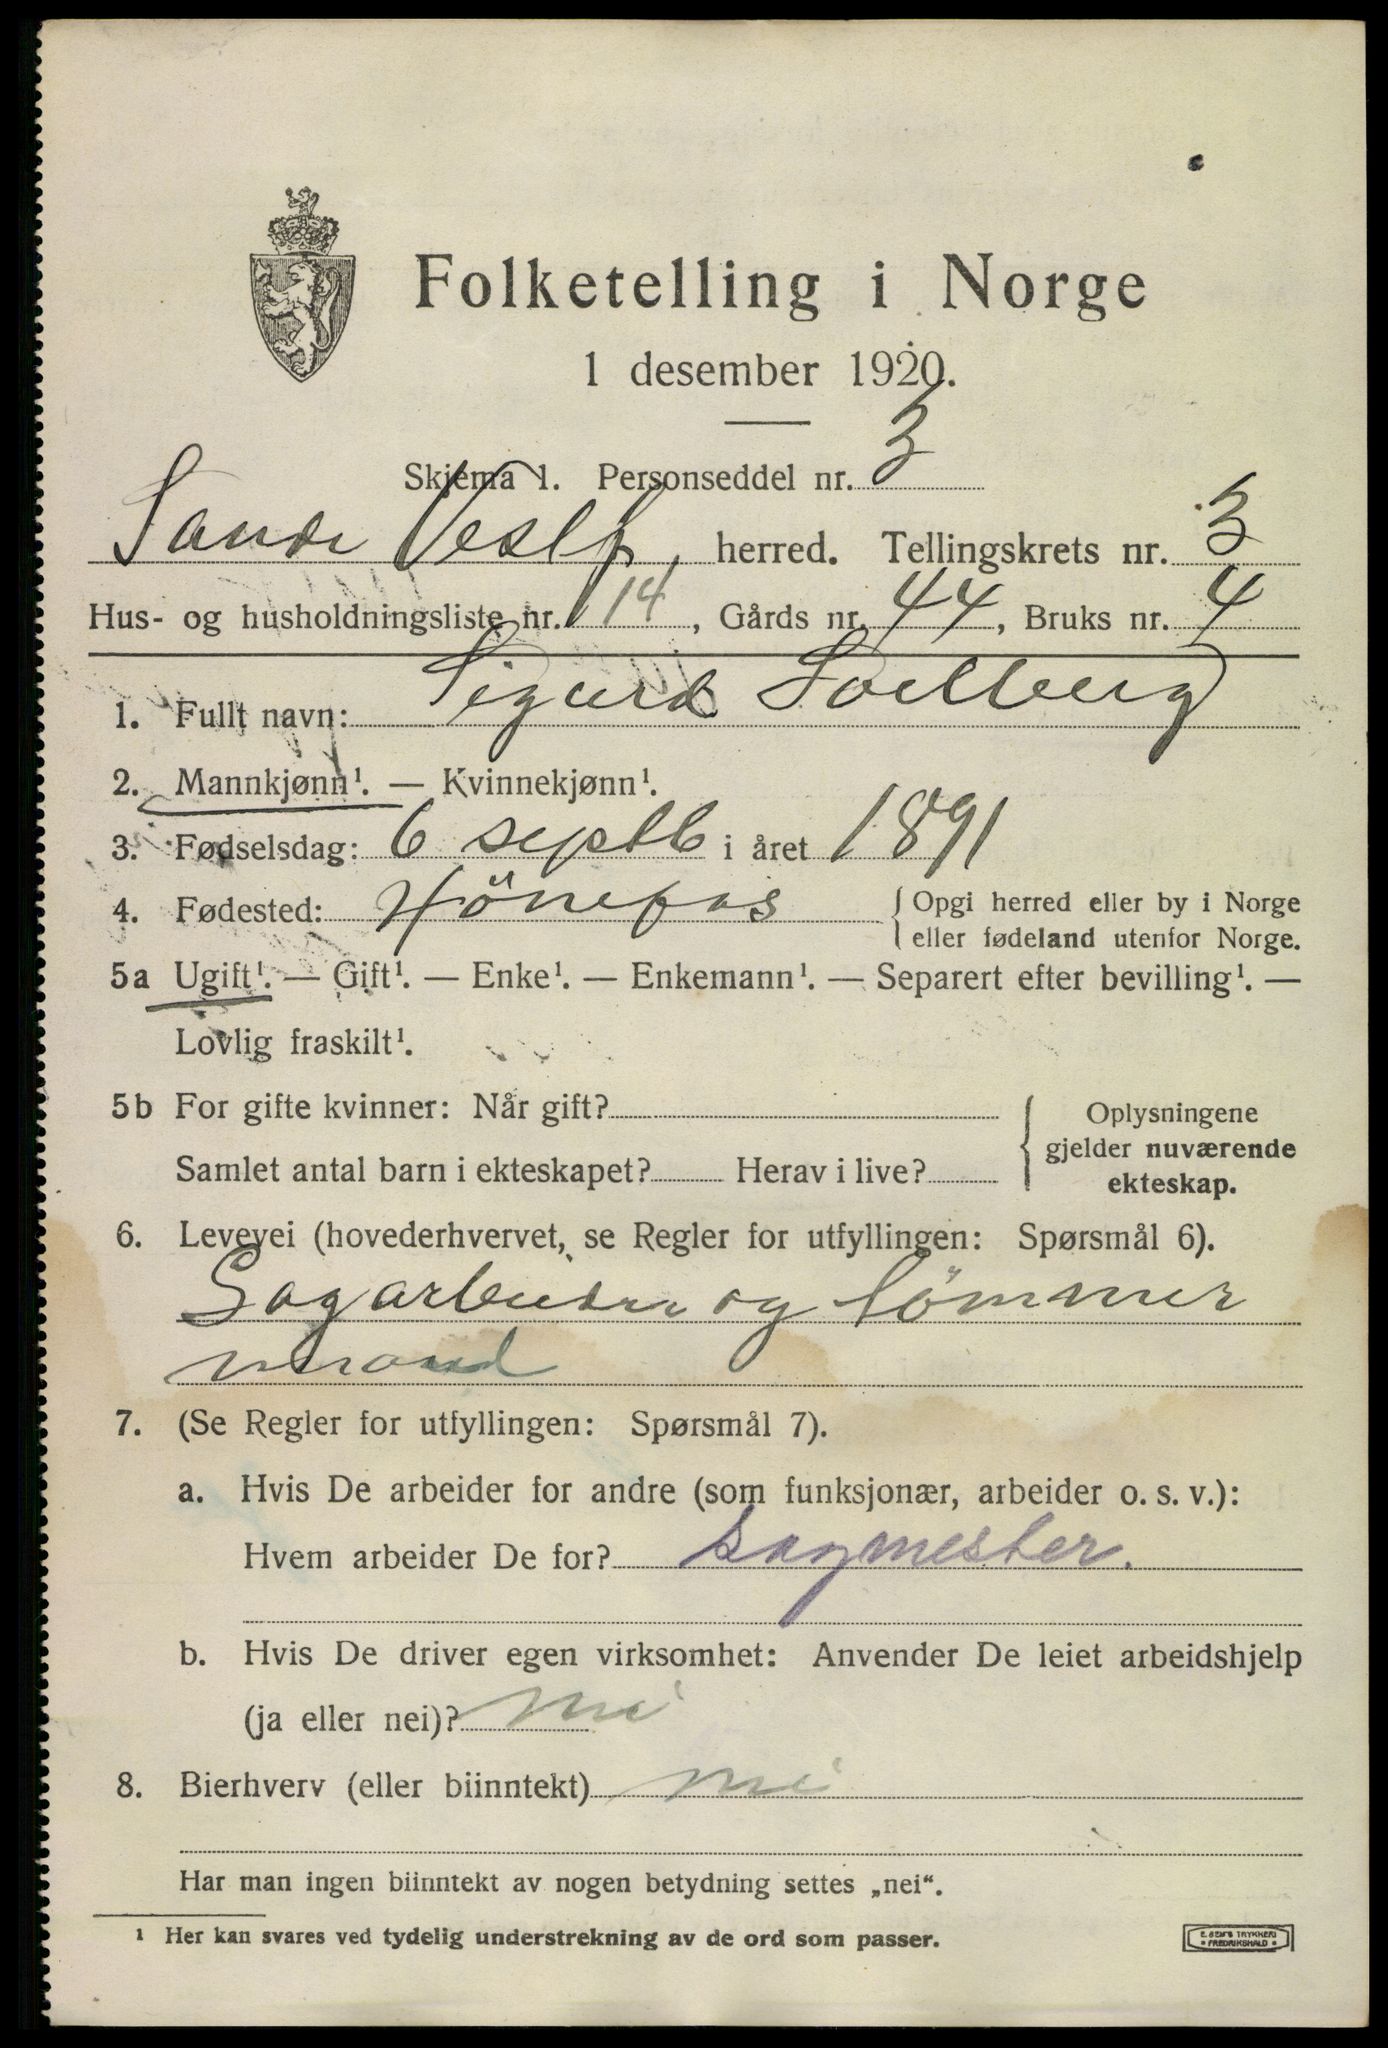 Folketelling i Norge
1 desember 1920.
Skjema 1. Personseddel nr. 3
Sande Vestf. herred. Tellingskrets nr. 3
Hus- og husholdningsliste nr. 14, Gårds nr. 44, Bruks nr. 4
1. Fullt navn: Sigurd Solberg
2. Mannkjønn¹. — Kvinnekjønn¹.
3. Fødselsdag: 6 septb i året 1891
4. Fødested: Hönefos { Opgi herred eller by i Norge
eller fødeland utenfor Norge.
5a Ugift¹. — Gift¹. — Enke¹. — Enkemann¹. — Separert efter bevilling¹. —
Lovlig fraskilt¹.
5b For gifte kvinner: Når gift?
Samlet antal barn i ekteskapet? Herav i live?
{ Oplysningene
gjelder nuværende
ekteskap.
6. Levevei (hovederhvervet, se Regler for utfyllingen: Spørsmål 6).
Sagarbeider og tömmer
mand
7. (Se Regler for utfyllingen: Spørsmål 7).
a. Hvis De arbeider for andre (som funksjonær, arbeider o. s. v.):
Hvem arbeider De for? Sagmester.
b. Hvis De driver egen virksomhet: Anvender De leiet arbeidshjelp
(ja eller nei)? nei
8. Bierhverv (eller biinntekt) nei
Har man ingen biinntekt av nogen betydning settes „nei“.
¹ Her kan svares ved tydelig understrekning av de ord som passer.
E. SEM'S TRYKKERI
FREDRIKSHALD